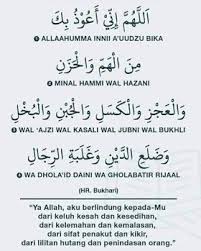 اَللَّهُمَّ إِنِّي أَعُوْذُ بِكَ
❶ ALLAAHUMMA INNII A'UUDZU BIKA
مِنَ الْهَمِّ وَالْحَزَنِ
❷ MINAL HAMMI WAL HAZANI
وَالْعَجْزِ وَالْكَسَلِ وَالْجُبْنِ وَالْبُخْلِ
❸ WAL 'AJZI WAL KASALI WAL JUBNI WAL BUKHLI
وَضَلَعِ الدَّيْنِ وَغَلَبَةِ الرِّجَالِ
❹ WA DHOLA'ID DAINI WA GHOLABATIR RIJAAL
(HR. Bukhari)
"Ya Allah, aku berlindung kepada-Mu
dari keluh kesah dan kesedihan,
dari kelemahan dan kemalasan,
dari sifat penakut dan kikir,
dari lilitan hutang dan penindasan orang."